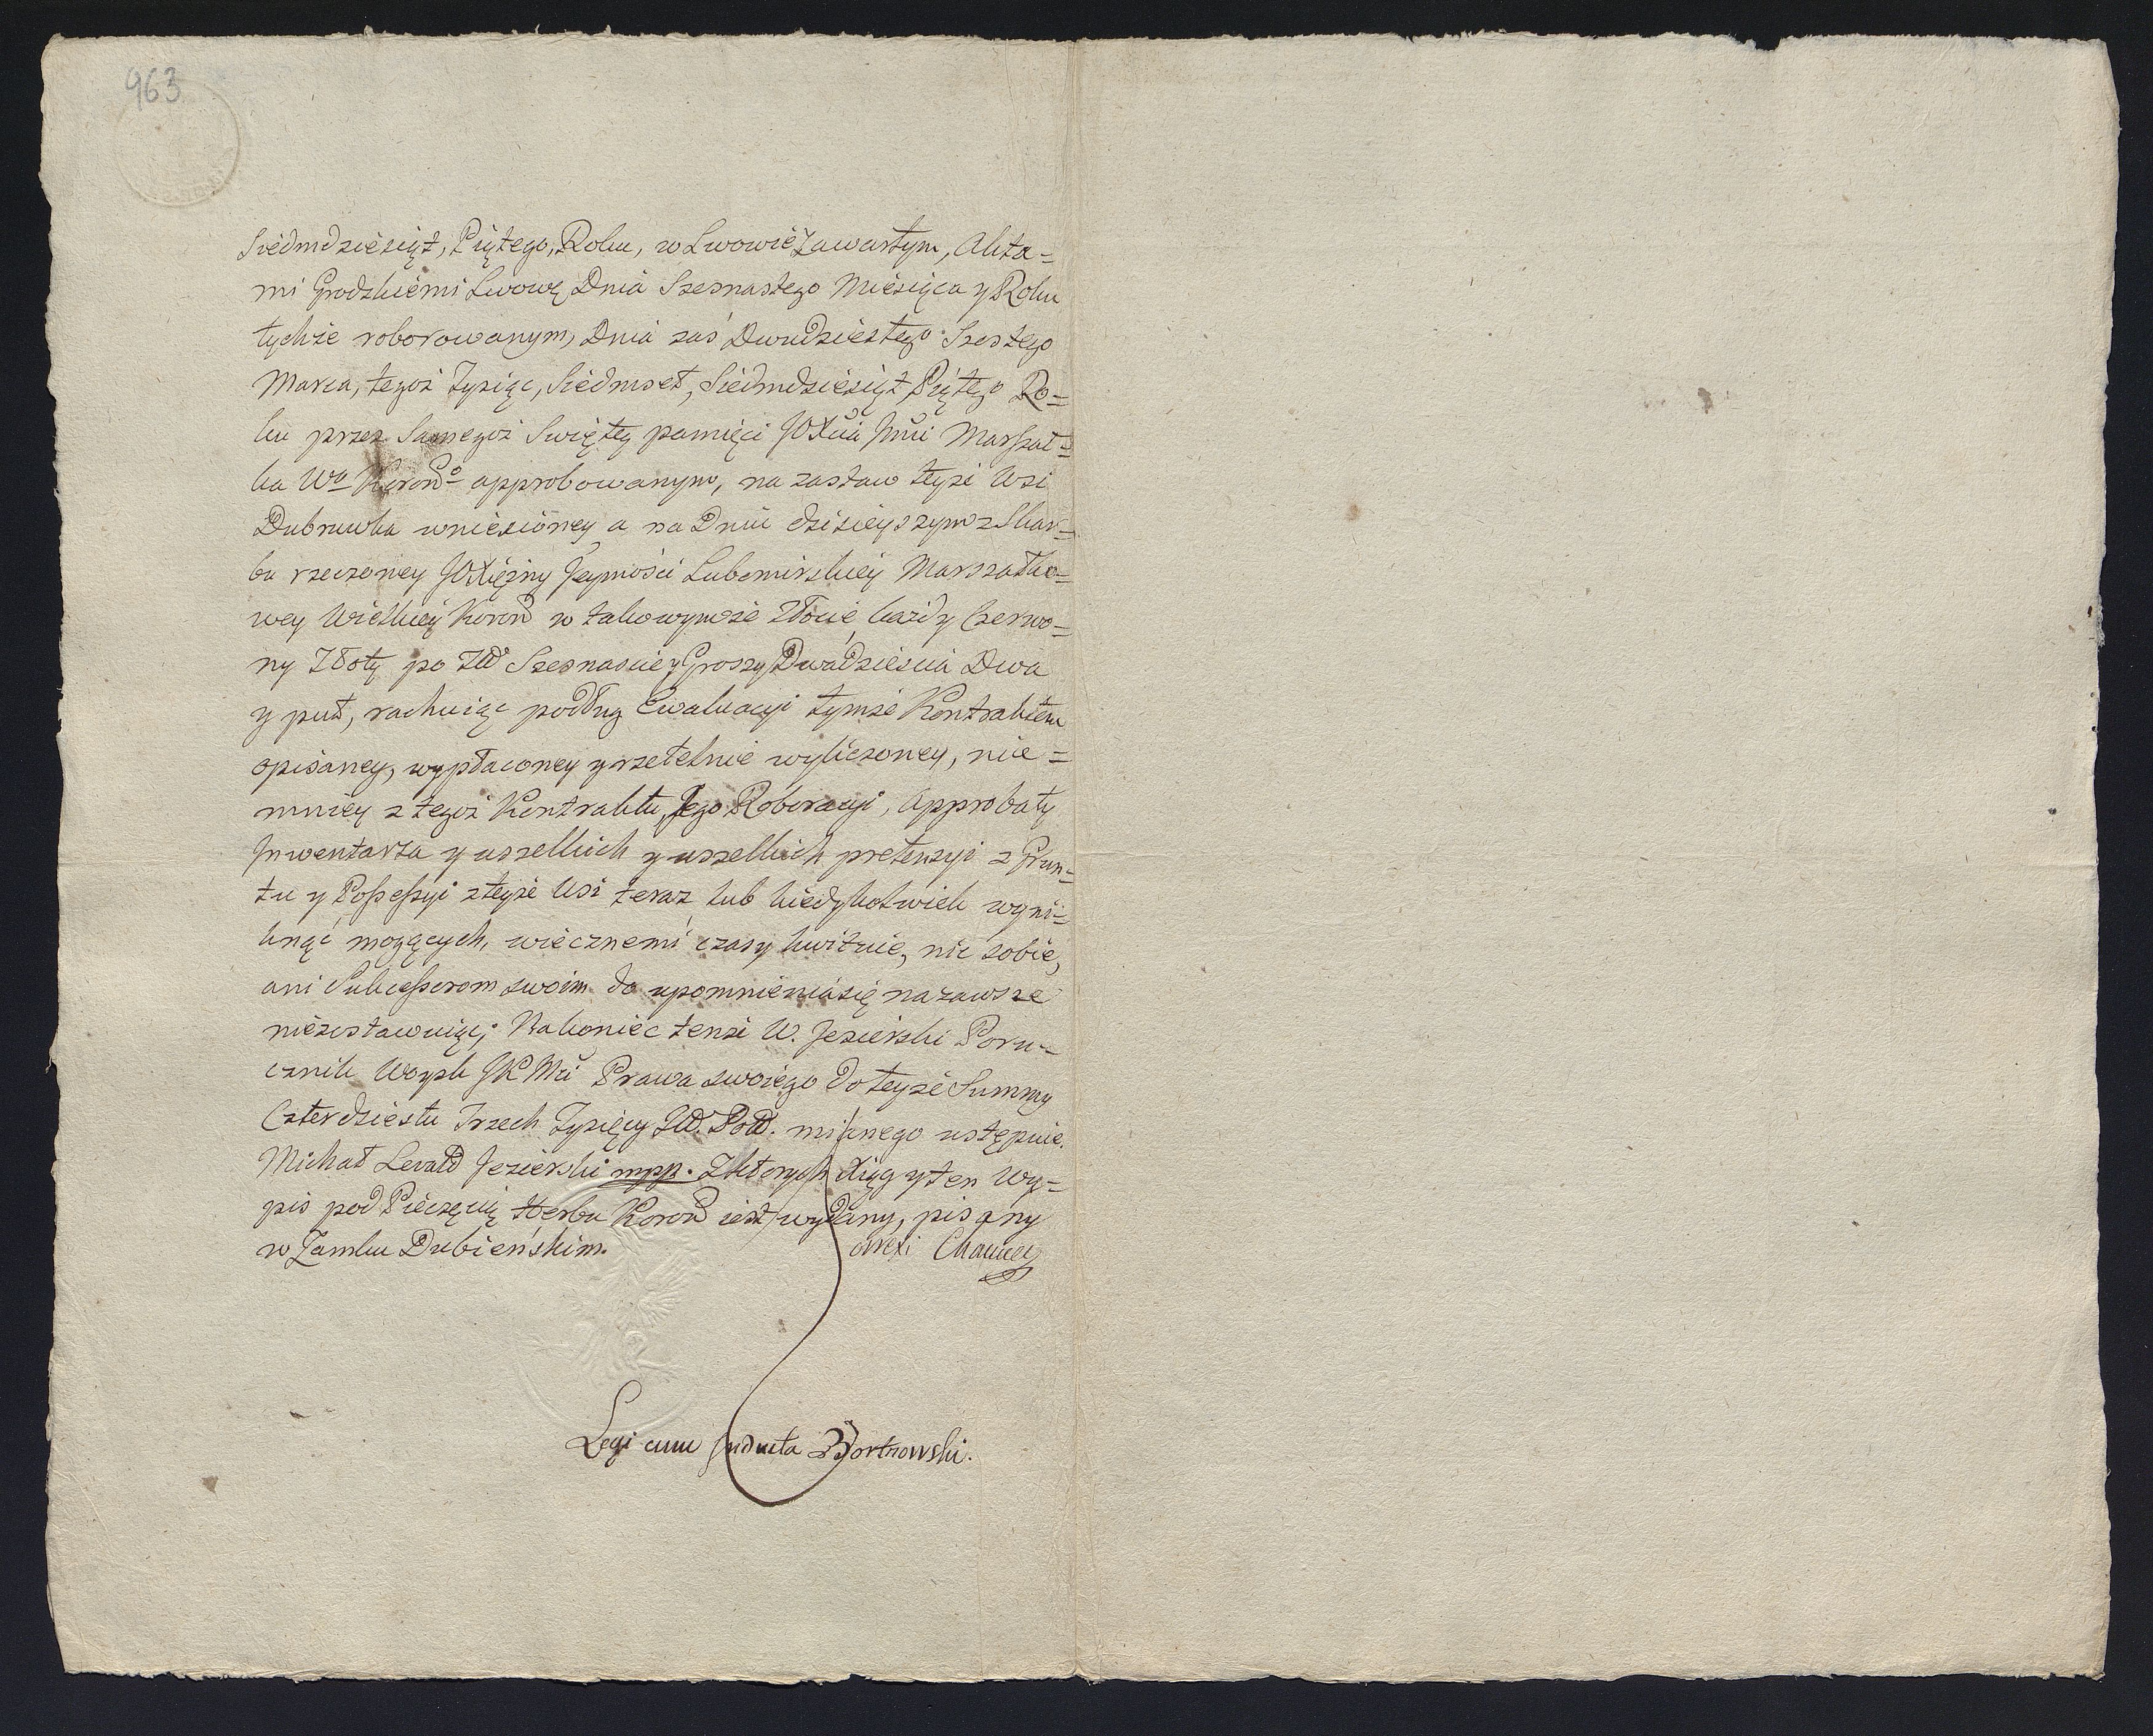 963
Siedmdziesiąt, Piątego, Roku, w Lwowie Zawartym, Akta=
mi Grodzkiemi Lwowę Dnia Szesnastego Miesiąca y Roku
tychże roborowanym, Dnia zaś Dwudziestego Szostego
Marca, tegoż Tysiąc, Siedmset, Siedmdziesiąt Piątego Ro=
ku przez Samegoż Swiętey pamięci JOXcia Jmci Marszał=
ka Wo Korono approbowanym, na zastaw teyże Wsi
Dubrawka wniesioney a na Dniu dzisieyszym z Skar=
bu rzeczoney JOXiężny Jeymości Lubomirskiey Marszałko=
wey Wielkiey Koron w takowymże Złocie każdy Czerwo=
ny Złoty po Złł Szesnaście y Groszy Dwadzieścia Dwa
y puł, rachuiąc podług Ewaluacyi tymże Kontraktem
opisaney, wypłaconey y rzetelnie wyliczoney, nie=
mniey z tegoż Kontraktu, Jego Roboracyi, Approbaty
Inwentarza y wszelkich y wszelkich pretensyi z Grun=
tu y Possessyi z teyże Wsi teraz lub kiedykolwiek wyni=
knąć mogących, wiecznemi czasy kwituie, nic sobie,
ani Sukcessorom swoim do upomnienia się nazawsze
niezostawuiąc; Nakoniec tenże W. Jezierski Poru=
cznik Woysk JK Mci Prawa swoiego do teyże Summy
Czterdziestu Trzech Tysięcy Złł. Poll. mianego ustępuie.
Michał Levald Jezierski mpp. Z których Xiąg y ten Wy=
pis pod Pieczęcią Herbu Koron iest wydany, pisany
w Zamku Dubieńskim.
Legi cum Inducta Bortnowski.